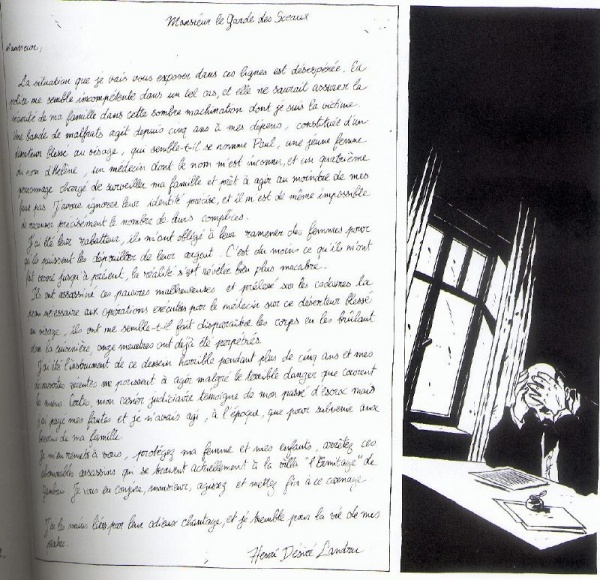 Monsieur le Garde des Sceaux
Monsieur,
La situation que je vais vous exposer dans ces lignes est désespérée. La
police me semble incompétente dans un tel cas, et elle ne saurait assurer la
sécurité de ma famille dans cette sombre machination dont je suis la victime.
Une bande de malfrats agit depuis cinq ans à mes dépens, constituée d'un
déserteur blessé au visage, qui semble-t-il se nomme Paul, une jeune femme
du nom d'Hélène, un médecin dont le nom m'est inconnu, et un quatrième
personnage chargé de surveiller ma famille et prêt à agir au moindre de mes
faux pas. J'avoue ignorer leur identité précise, et il m'est de même impossible
de recenser précisément le nombre de leurs complices.
J'ai été leur rabatteur, ils m'ont obligé à leur ramener des femmes pour
qu'ils puissent les dépouiller de leur argent. C'est du moins ce qu'ils m'ont
fait croire jusqu'à présent, la réalité s'est révélée bien plus macabre.
Ils ont assassiné ces pauvres malheureuses et prélevé sur les cadavres la
peau nécessaire aux opérations exécutées par le médecin sur ce déserteur blessé
au visage, ils ont me semble-t-il fait disparaître les corps en les brûlant
dans la cuisinière, onze meurtres ont déjà été perpétrés.
J'ai été l'instrument de ce dessein horrible pendant plus de cinq ans et mes
récentes me poussent à agir malgré le terrible danger que courent
les miens. Certes, mon casier judiciaire témoigne de mon passé d'escroc mais
j'ai payé mes fautes et je n'avais agi, à l'époque, que pour subvenir aux
besoins de ma famille.
Je m'en remets à vous, protégez ma femme et mes enfants, arrêtez ces
abominables assassins qui se trouvent actuellement à la villa "l'Ermitage" de
Gambais. Je vous en conjure, monsieur, agissez et mettez fin à ce carnage.
J'ai les mains liées par leur odieux chantage, et je tremble pour la vie de mes
Henri Désiré Landru